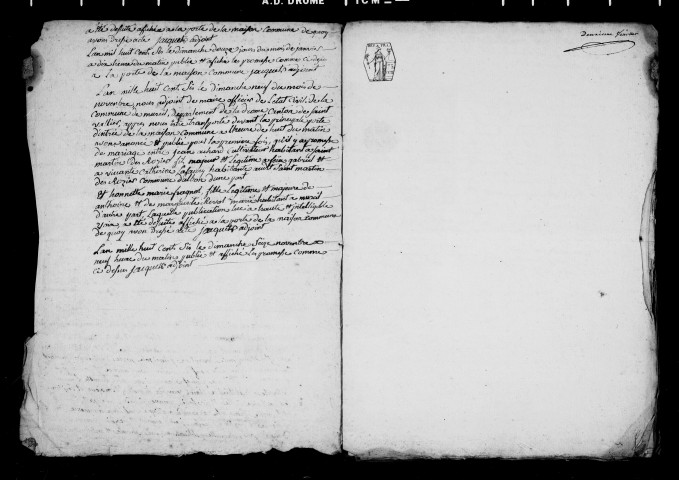 A.D. DROME 1 CM
a été depuis affichée a la porte de la maison commune de quoy
avons dressé acte jacquets adjoint
L'an mil huit cent six le dimanche douze jours du mois de
a dix heure du matin publié et affiché la promesse comme ci
a la porte de la maison commune jacquets adjoint
L'an mille huit cent six le dimanche neuf du mois de
novembre nous adjoint de maire officier de l'etat civil de la
commune de departement de la drome canton de saint
vallier, apres nous être transporté devant la principale porte
d'entrée de la maison commune a l'heure de huit du matin
avons anoncé et publié pour la première fois qu'il y a promesse
de mariage entre jean achard cultivateur habitant a saint
martin des Rozier fils majeur et legitime a feu gabriel et
a vivante catherine habitante audit saint martin
des Rozier commune d'une part
et honnette marie fragnol fille legitime et majeure de
anthoine et de marguerite mariés habitant a
d'autre part, Laquelle publication lue a haute et intelligible
voix, a été depuis affichée a la porte de la maison commune
de quoy avons dressé acte jacquets adjoint
L'an mille huit cent six le dimanche seize novembre a
neuf heure du matin publié et affiché la promesse comme
ci dessus jacquets adjoint